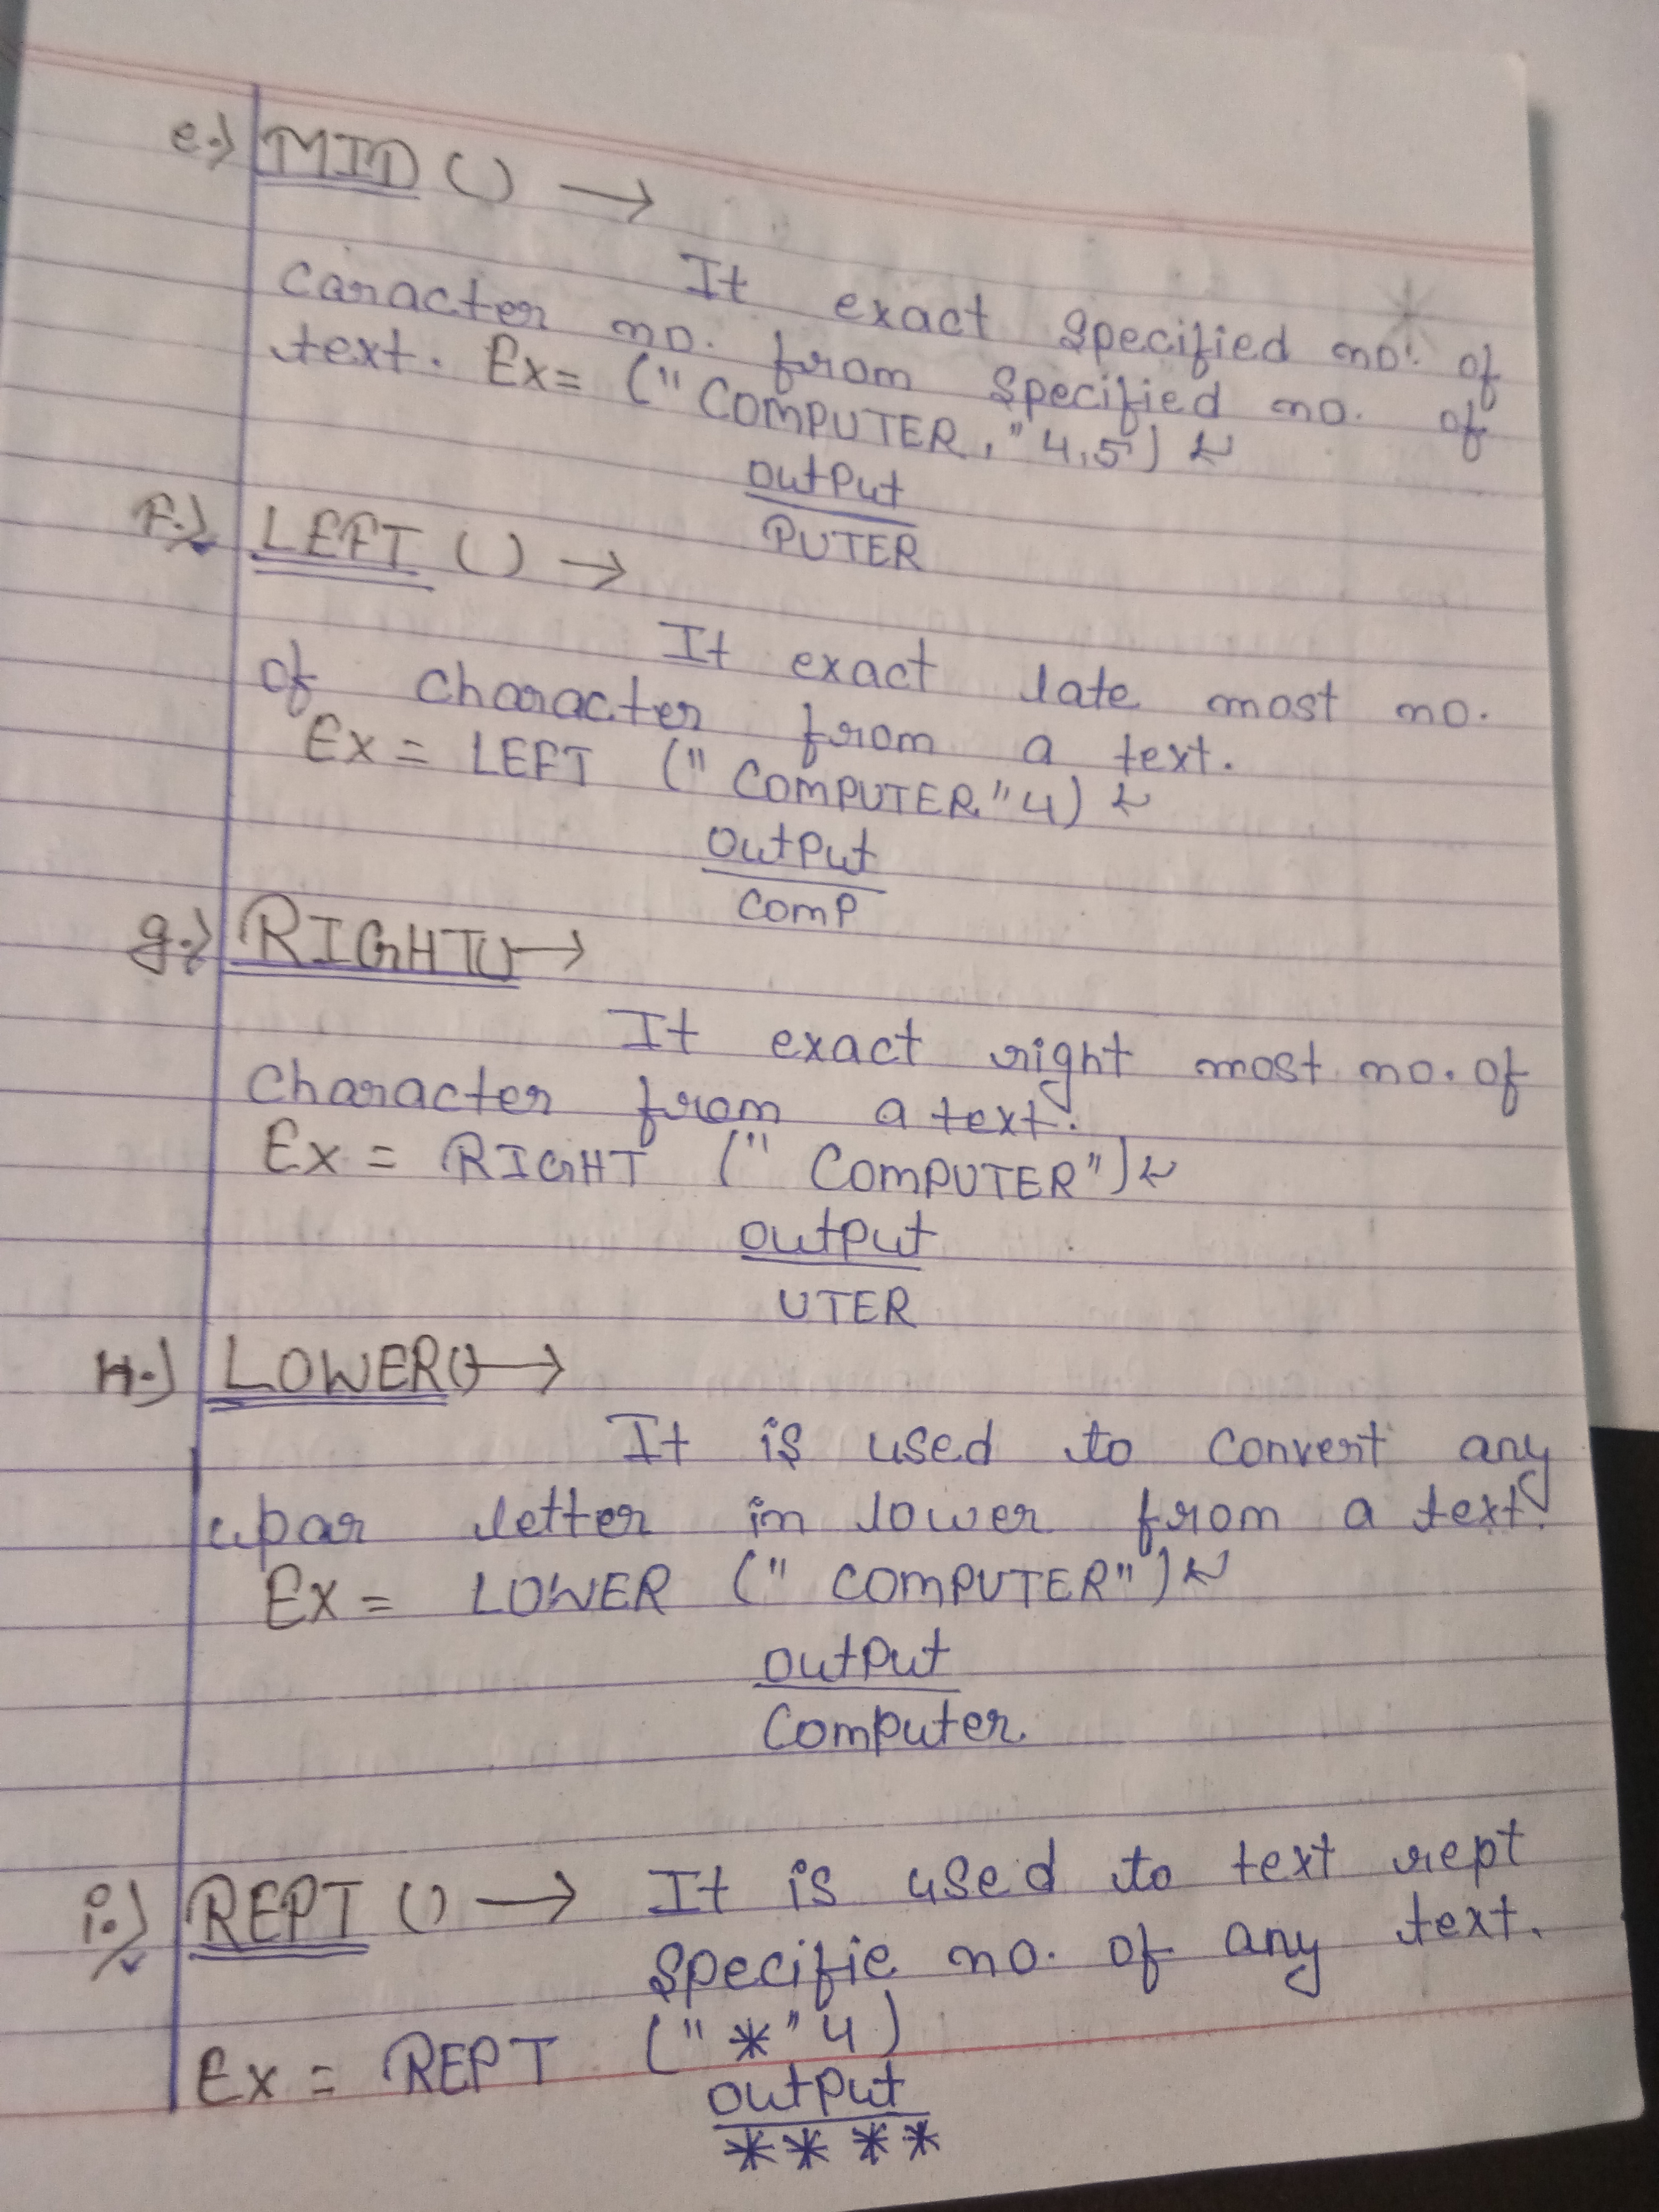 e.) MID () →
It exact specified no. of
caracter no. from specified no. of
text. Ex= ("COMPUTER," 4,5) ↵
output
PUTER
F.) LEFT () →
It exact late most no.
of character from a text.
Ex = LEFT ("COMPUTER"4) ↵
output
COMP
g.) RIGHT() →
It exact right most no. of
character from a text.
Ex = RIGHT ("COMPUTER") ↵
output
UTER
H.) LOWER() →
It is used to convert any
upar letter in lower from a text.
Ex = LOWER ("COMPUTER") ↵
output
Computer
i.) REPT () → It is used to text rept
specific no. of any text.
Ex = REPT ("*"4)
output
****